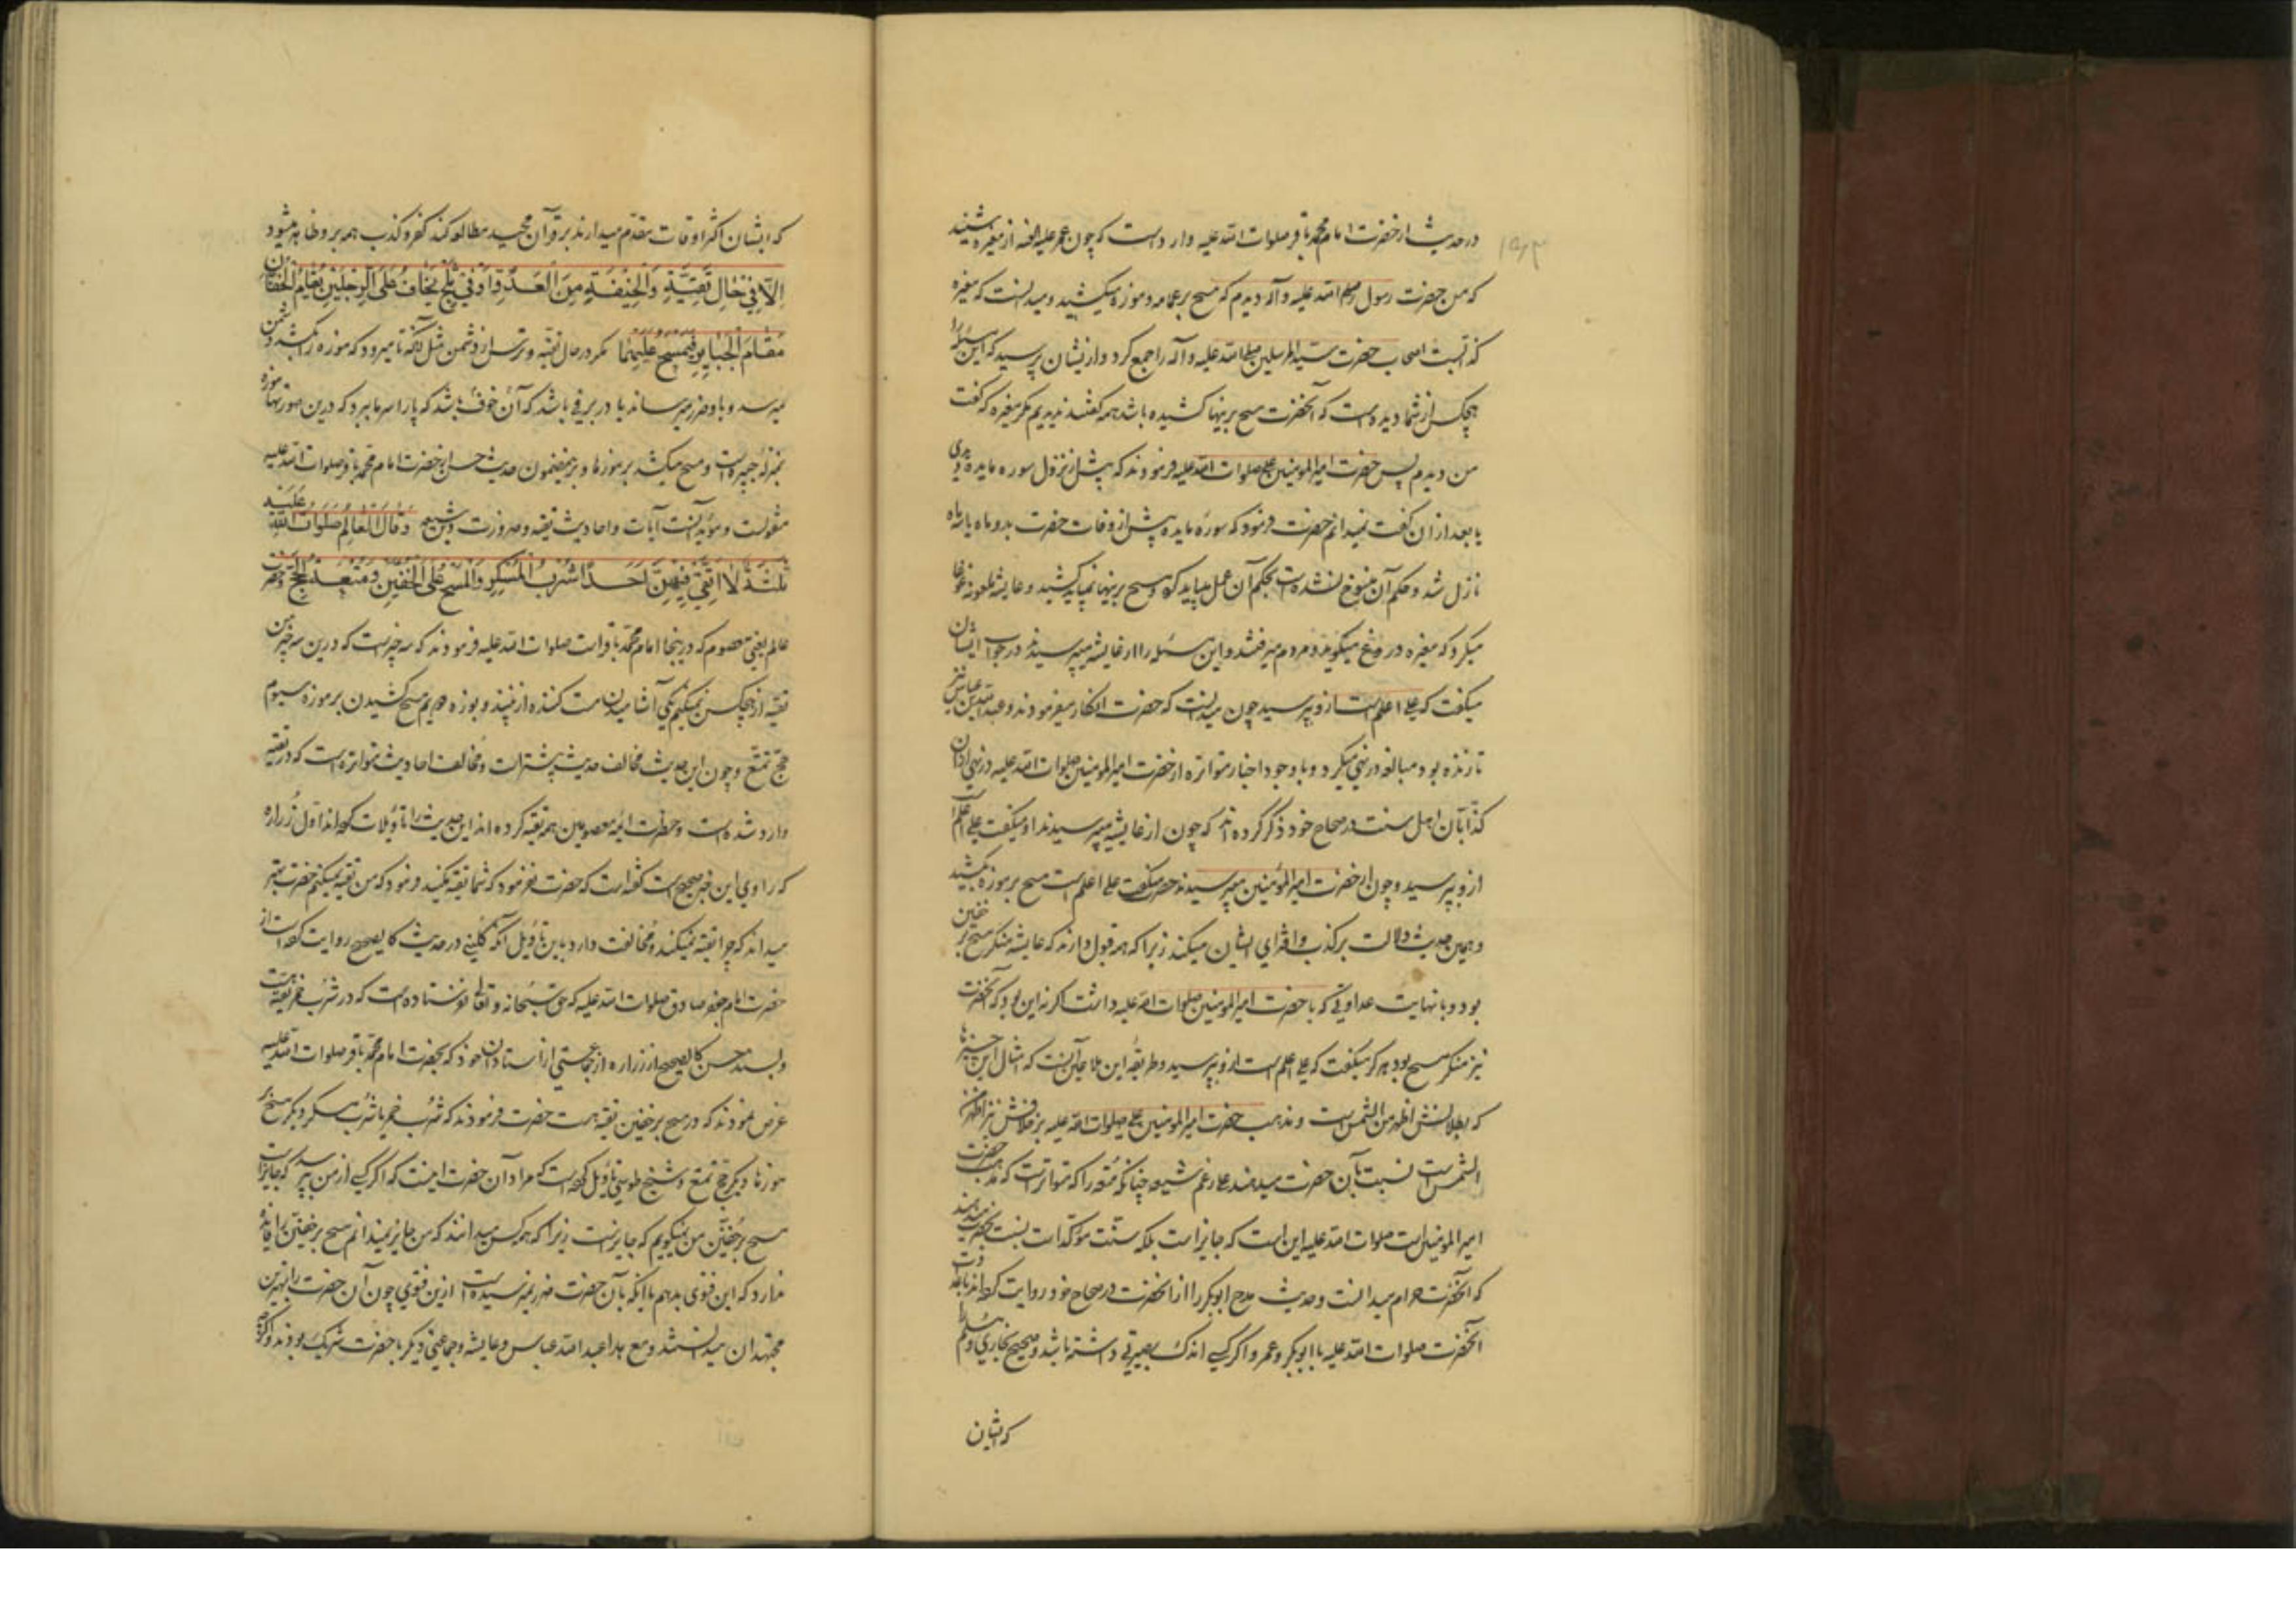 در حدیث از حضرت امام محمد باقر صلوات الله علیه وارد است که چون عمر علیه اللعنه از مغیره شنید
که من حضرت رسول صلی الله علیه و آله دیدم که مسح بر عمامه و موزه میکشید و میدانست که مغیره
کذابست اصحاب حضرت سید المرسلین صلی الله علیه و آله را جمع کرد و از ایشان پرسید که این مسئله را
هیچکس از شما دیده است که آنحضرت مسح بر اینها کشیده باشد همه گفتند ندیدیم مگر مغیره که گفت
من دیدم پس حضرت امیر المؤمنین علی صلوات الله علیه فرمودند که پیش از نزول سوره مایده دیدی
یا بعد از ان گفت نمیدانم حضرت فرمود که سوره مایده پیش از وفات حضرت بدو ماه یا سه ماه
نازل شد و حکم آن منسوخ نشده است بحکم آن عمل میباید کرد و مسح بر اینها نمیباید کشید و عایشه ملعونه غوغا
میکرد که مغیره دروغ میگوید و مردم میرفتند و این مسئله را از عایشه میپرسیدند در جواب ایشان
میگفت که علی اعلم است از و بپرسید چون میدانست که حضرت انکار میفرمودند و عبد الله بن عباس نیز
تا زنده بود مبالغه در نهی میکرد و با وجود اخبار متواتره از حضرت امیر المؤمنین صلوات الله علیه در نهی از ان
کذابان اهل سنت در صحاح خود ذکر کرده اند که چون از عایشه میپرسیدند او میگفت علی اعلم است
از و بپرسید و چون از حضرت امیر المؤمنین میپرسیدند حضرت میگفت علی اعلم است مسح بر موزه میکشید
و همین حدیث دلالت بر کذب و افترای ایشان میکند زیرا که همه قبول دارند که عایشه منکر مسح بر خفین
بود و با نهایت عداوتی که با حضرت امیر المؤمنین صلوات الله علیه داشت اگر نه این بود که آنحضرت
نیز منکر مسح بود هرگز میگفت که علی اعلم است از و بپرسید و طریقه این ملاعین آنست که امثال این چیزها
که بطلانش اظهر من الشمس است و مذهب حضرت امیر المؤمنین علی صلوات الله علیه بر خلافش نیز اظهر من
الشمس است نسبت بآن حضرت میدهند علی رغم شیعه چنانکه متعه را که متواتر است که مذهب حضرت
امیر المؤمنین است صلوات الله علیه این است که جایز است بلکه سنت مؤکد است نسبت بحضرت میدهند
که آنحضرت حرام میدانست و حدیث مدح ابوبکر را از آنحضرت در صحاح خود روایت کرده اند با عداوت
آنحضرت صلوات الله علیه با ابوبکر و عمر و اگر کسی اندک بصیرتی داشته باشد و صحیح بخاری و مسلم را
که ایشان
که ایشان اکثر اوقات مقدم میدارند بر قرآن مجید مطالعه کند کفر و کذب همه بر و ظاهر میشود
اِلّا فِی حَالِ تَقِیَّةٍ وَالْخِیفَةِ مِنَ الْعَدُوِّ اَوْ فِی ثَلْجٍ یُخَافُ عَلَی الرِّجْلَیْنِ یُقَامُ الْخُفَّانِ
مَقَامَ الْجَبَایِرِ فَیُمْسَحُ عَلَیْهِمَا مگر در حال تقیه و ترس از دشمن مثل آنکه تا میرود که موزه را بکشد دشمن
میرسد و باو ضرر میرساند یا در برفی باشد که آن خوف باشد که پا را سرما ببرد که درین صورتها موزه
بمنزله جبیره است و مسح میکشد بر موزها و بر این مضمون حدیث حسن از حضرت امام محمد باقر صلوات الله علیه
منقولست و مؤید آنست آیات و احادیث تقیه و ضرورت وَقَالَ الْعَالِمُ صَلَوَاتُ اللهِ عَلَیْهِ
ثَلٰثَةٌ لَا اَتَّقِی فِیهِنَّ اَحَدًا شُرْبُ الْمُسْکِرِ وَالْمَسْحُ عَلَی الْخُفَّیْنِ وَمُتْعَةُ الْحَجِّ وحضرت
عالم یعنی معصوم که درینجا امام محمد باقر است صلوات الله علیه فرمودند که سه چیز است که درین سه چیز من
تقیه از هیچکس نمیکنم یکی آشامیدن مست کننده از نبیذ و بوزه دویم مسح کشیدن بر موزه سیوم
حج تمتع و چون این حدیث مخالف حدیث پیشتر است و مخالف احادیث متواتره است که در تقیه
وارد شده است و حضرات ائمه معصومین همه تقیه کرده اند این حدیث را تأویلات کرده اند اول زراره
که راوی این خبر صحیح است گفته است که حضرت نفرمود که شما تقیه مکنید فرمود که من تقیه نمیکنم حضرت بهتر
میداند که چرا تقیه نمیکند و مخالفت دارد باین تأویل آنکه کلینی در حدیث کالصحیح روایت کرده است از
حضرت امام جعفر صادق صلوات الله علیه که حق سبحانه و تعالی نفرستاده است که در شرب خمر تقیه هست
و بسند حسن کالصحیح از زراره از جماعتی از استادان خود که بحضرت امام محمد باقر صلوات الله علیه
عرض نمودند که در مسح بر خفین تقیه هست حضرت فرمودند که شرب خمر یا شرب مسکر و دیگر مسح بر
موزها و دیگر حج تمتع و شیخ طوسی تأویل کرده است که مراد آن حضرت اینست که اگر کسی از من پرسد که جایز است
مسح بر خفین من نمیگویم که جایز است زیرا که همه کس میدانند که من جایز نمیدانم مسح بر خفین را فایده
ندارد که این فتوی بدهم با آنکه بآن حضرت ضرر نمیرسیده است ازین فتوی چون آن حضرت را بهترین
مجتهدان میدانستند و مع هذا عبد الله عباس و عایشه و جماعتی دیگر با حضرت شریک بودند و اگر